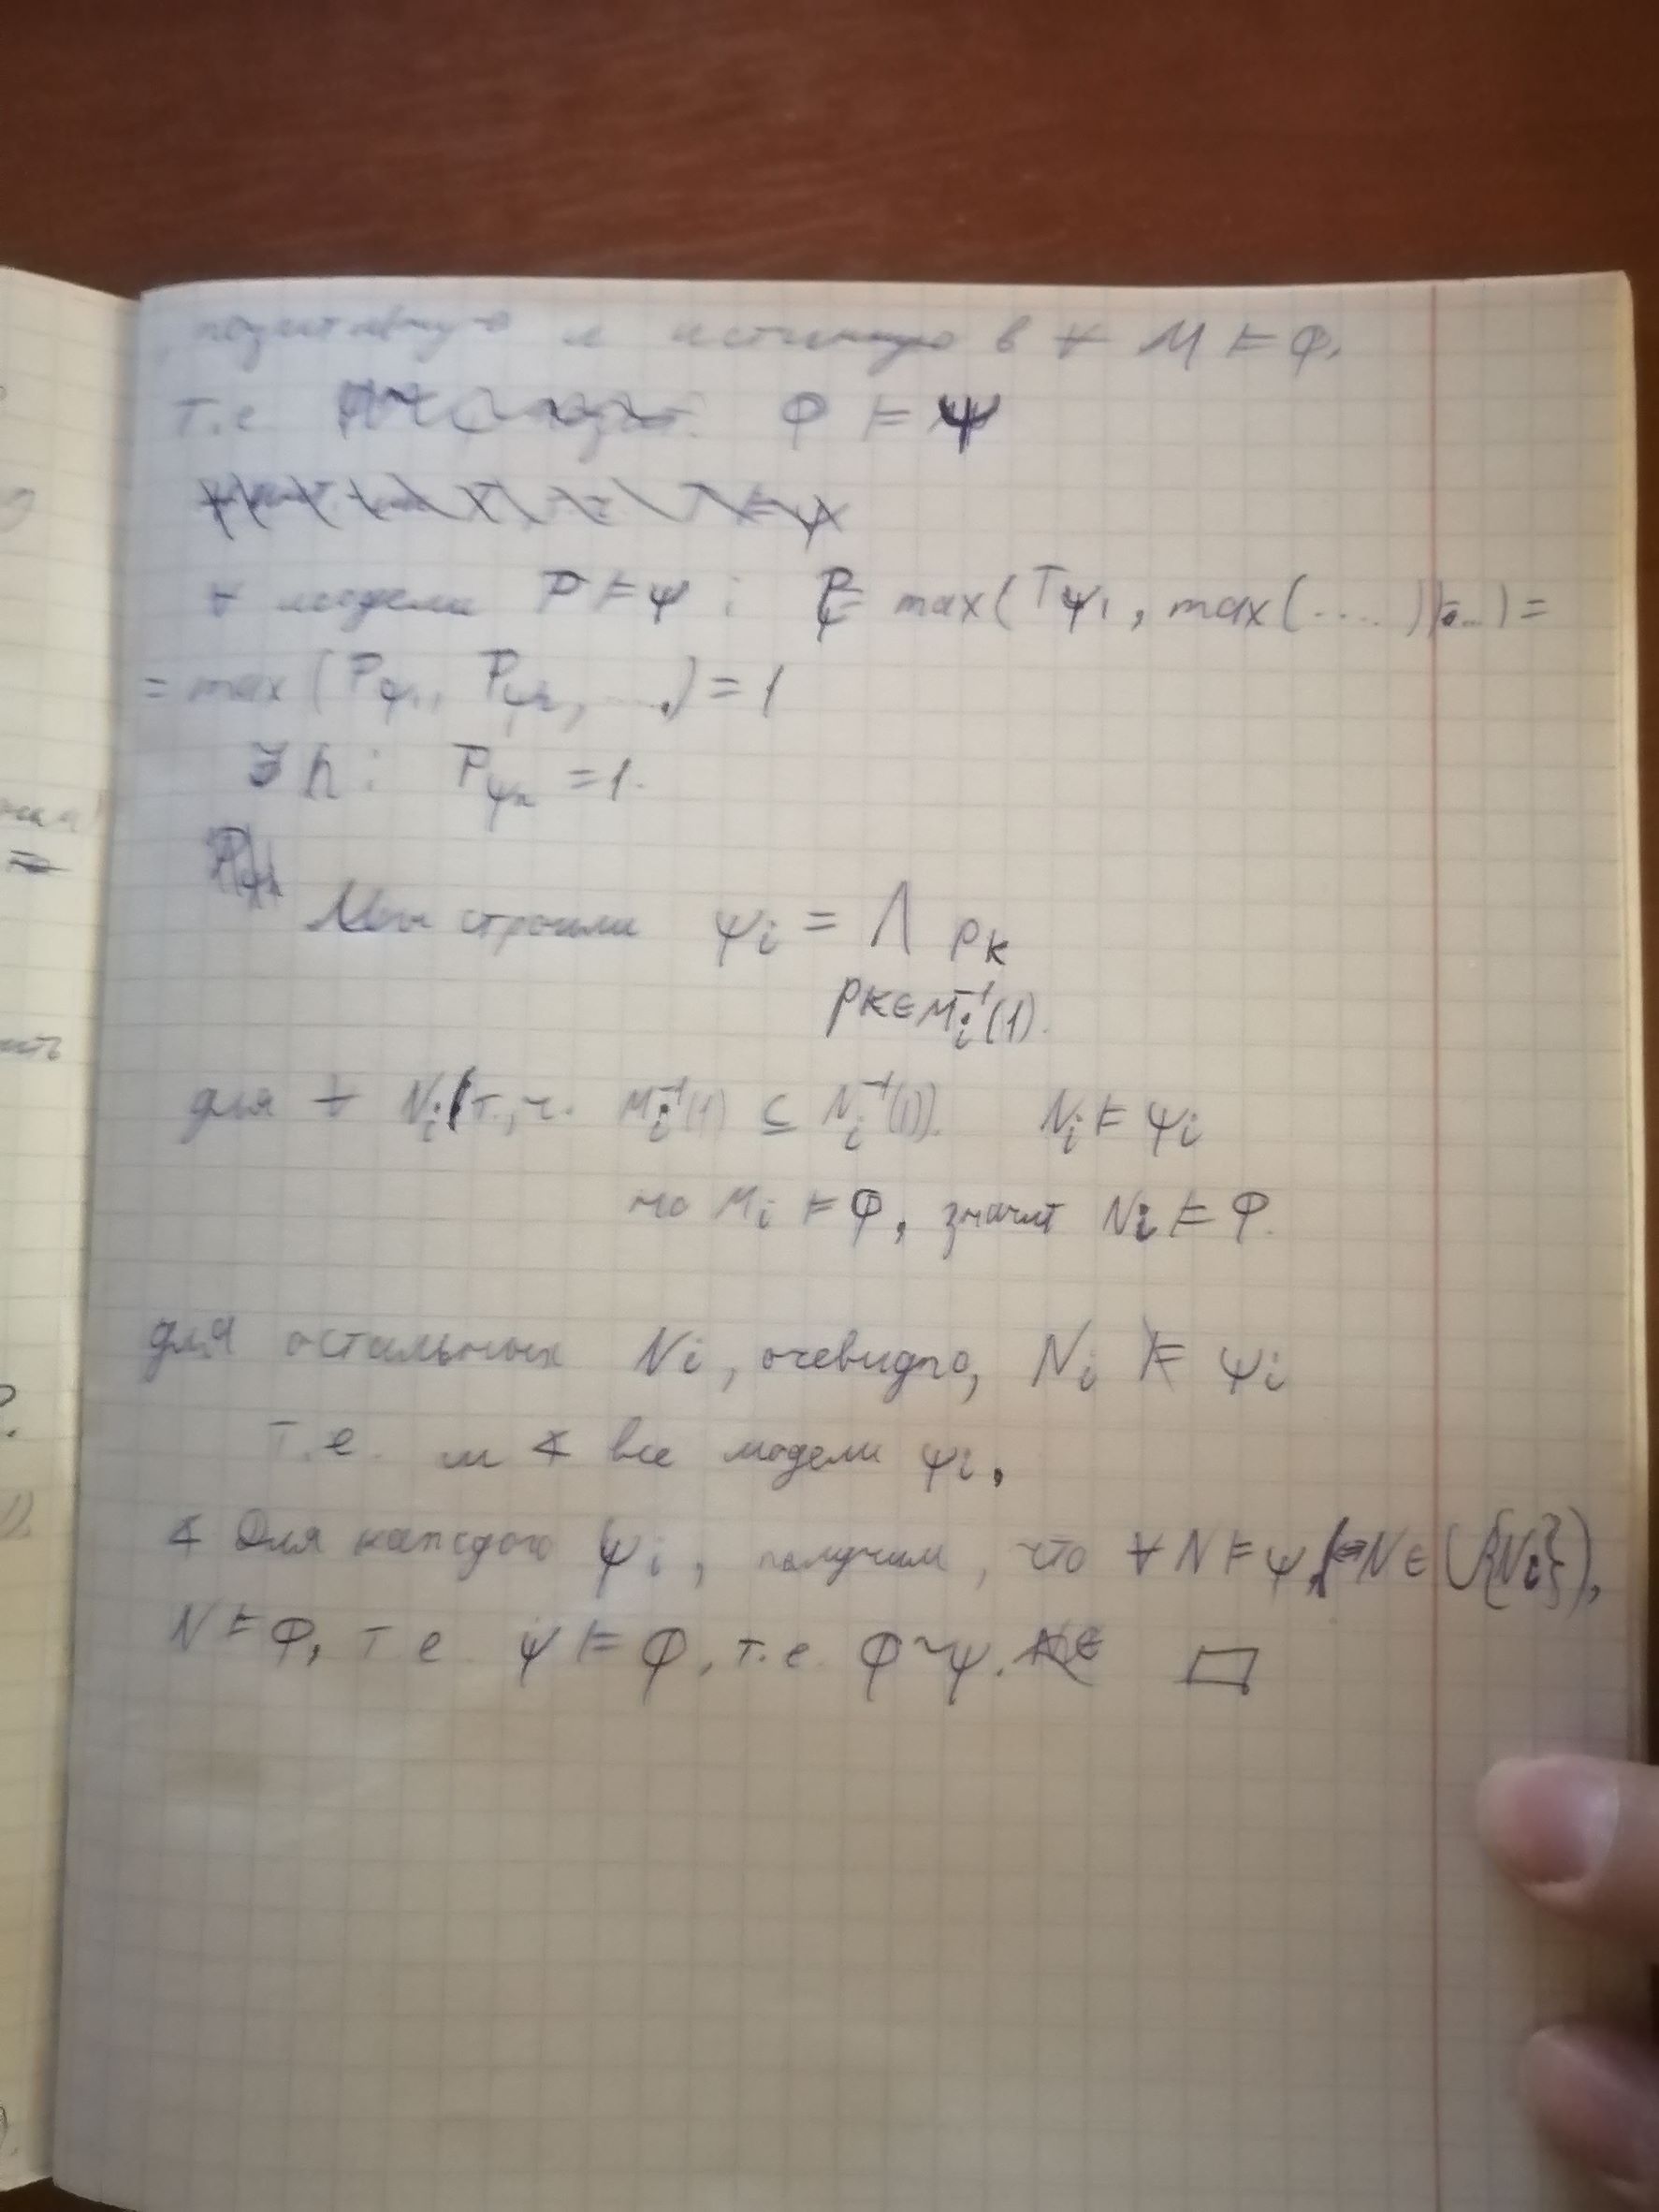 позитивную и истинную в ∀ M ⊨ φ,
т.е φ ⊨ ψ
∀ модели P ⊨ ψ : P_ψ = max(P_ψ1, max(....)...) =
= max (P_ψ1, P_ψ2, ....) = 1
∃ n : P_ψn = 1.
Мы строили ψi = ⋀ pk
pk ∈ Mi⁻¹(1).
для ∀ Ni (т.ч. Mi⁻¹(1) ⊆ Ni⁻¹(1)). Ni ⊨ ψi
но Mi ⊨ φ, значит Ni ⊨ φ.
для остальных Ni, очевидно, Ni ⊭ ψi
т.е. ∢ все модели ψi,
∢ Для каждого ψi, получим, что ∀ N ⊨ ψ, (⇔ N ∈ ∪{Ni}),
N ⊨ φ, т е. ψ ⊨ φ, т.е. φ ~ ψ. □